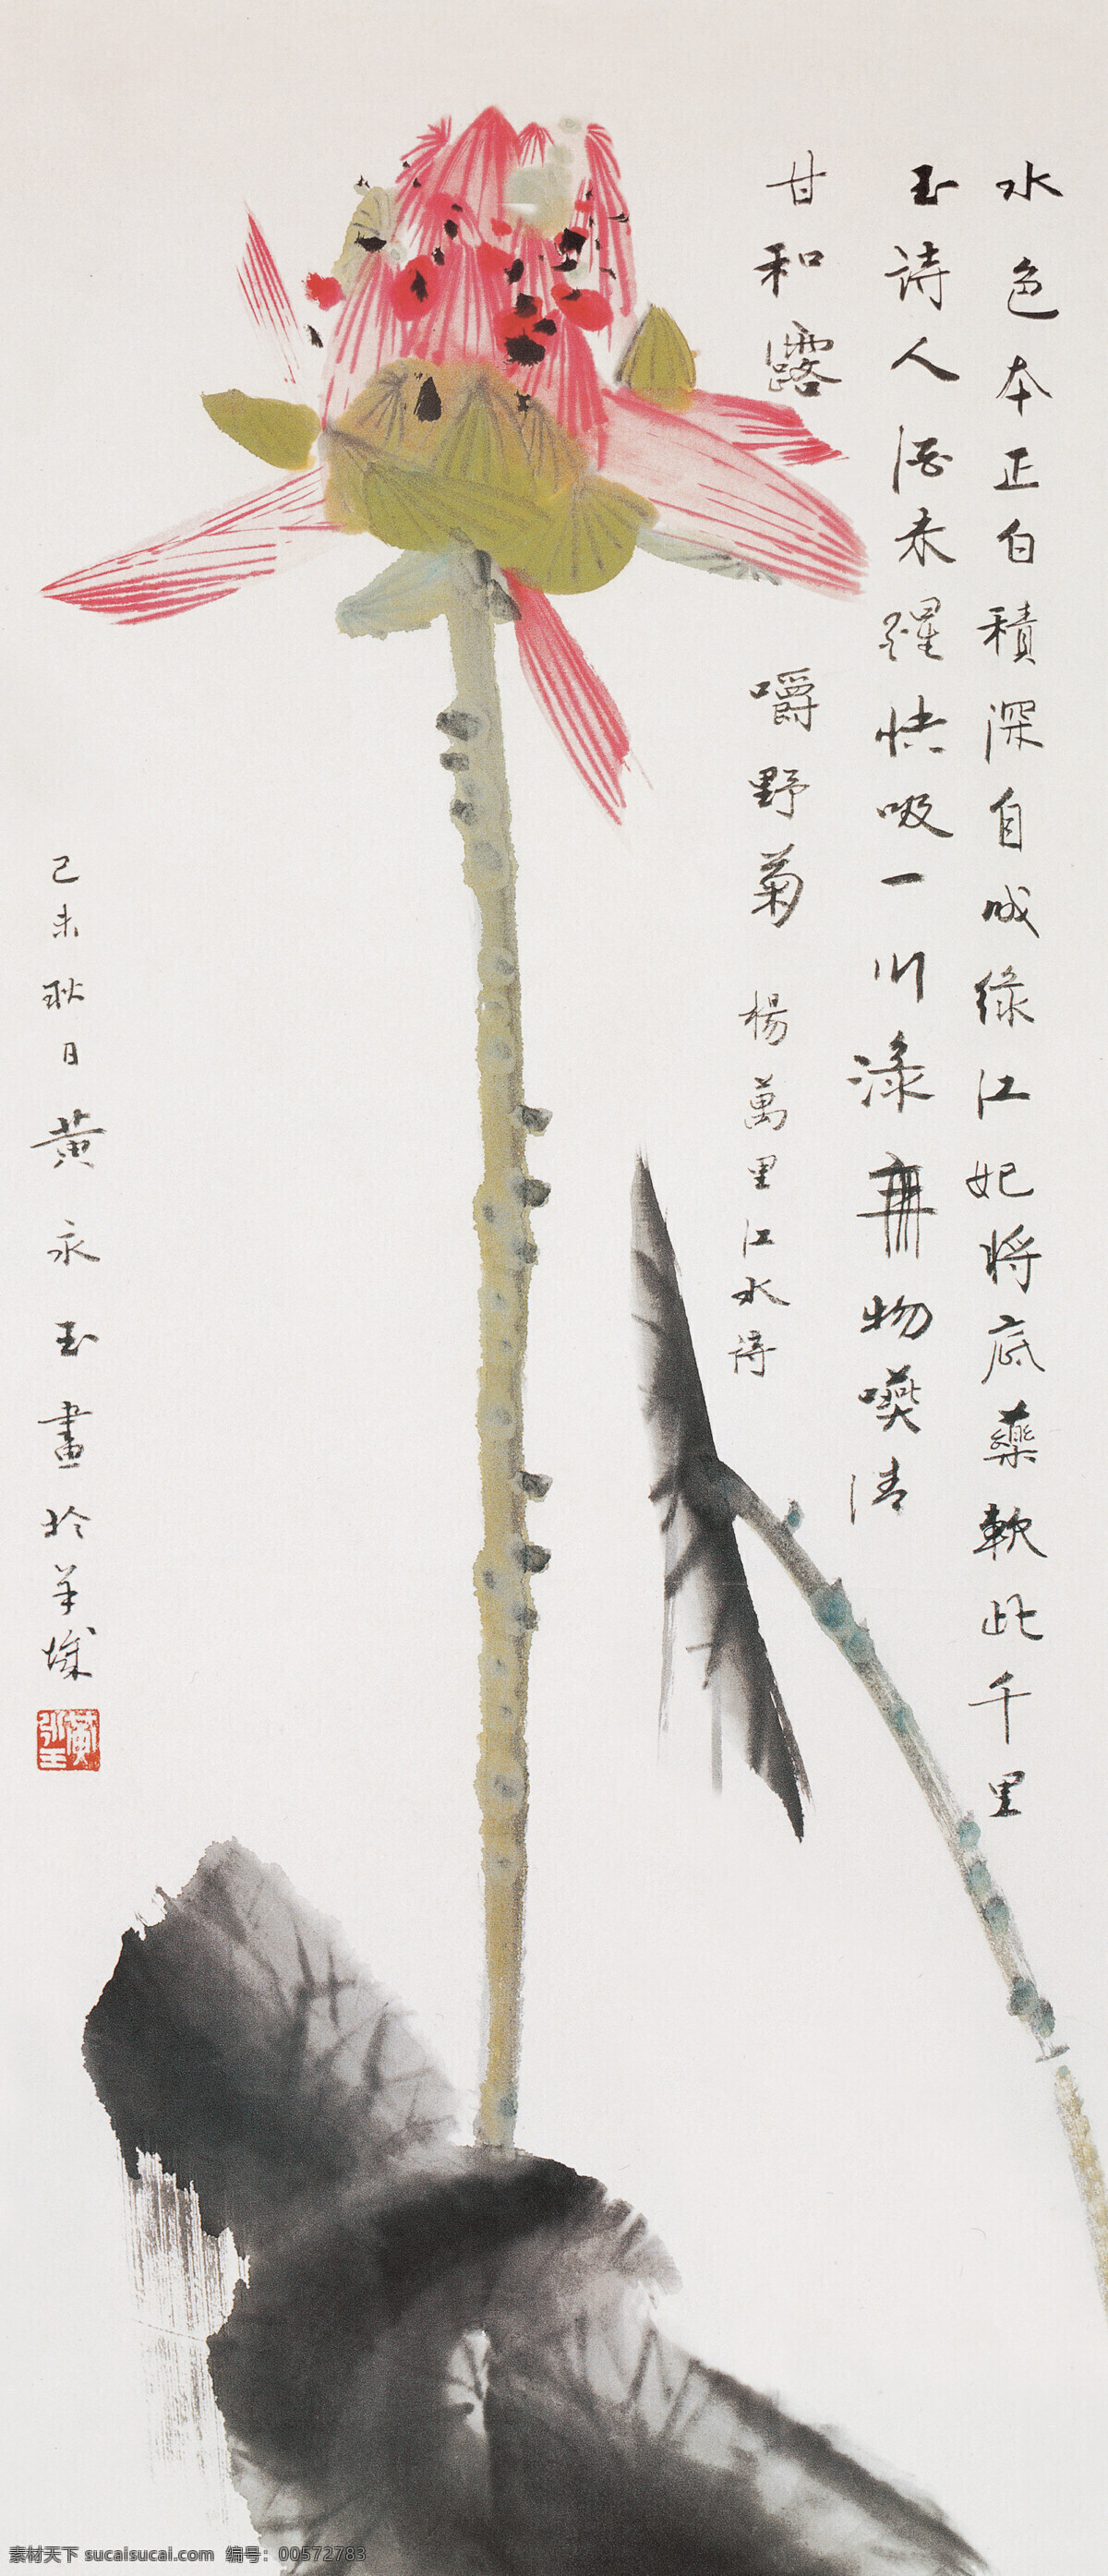 水色本正白積深自成綠江妃將底藥軟此千里
玉詩人酒未醒快吸一川淥無物嚥清
甘和露 嚼野菊 楊萬里江水詩
己未秋日黃永玉畫於羊城
黃永玉
素材天下 sucaisucai.com 编号：00572783